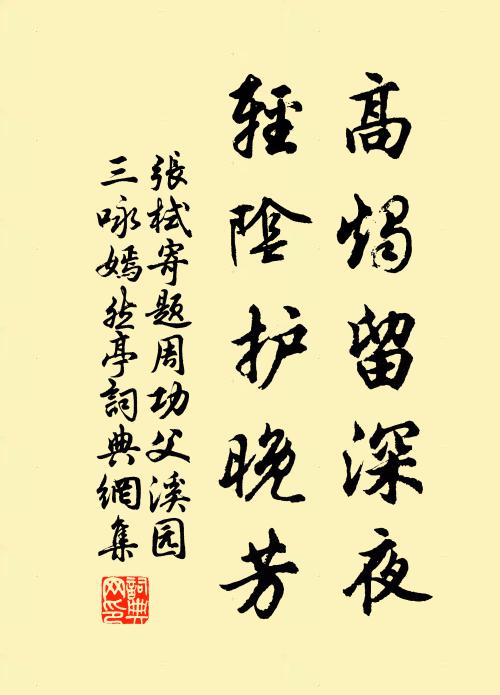 高燭留深夜
輕陰护晚芳
張栻寄題周功父溪园
三咏嫣然亭詞典網集
詞典网印